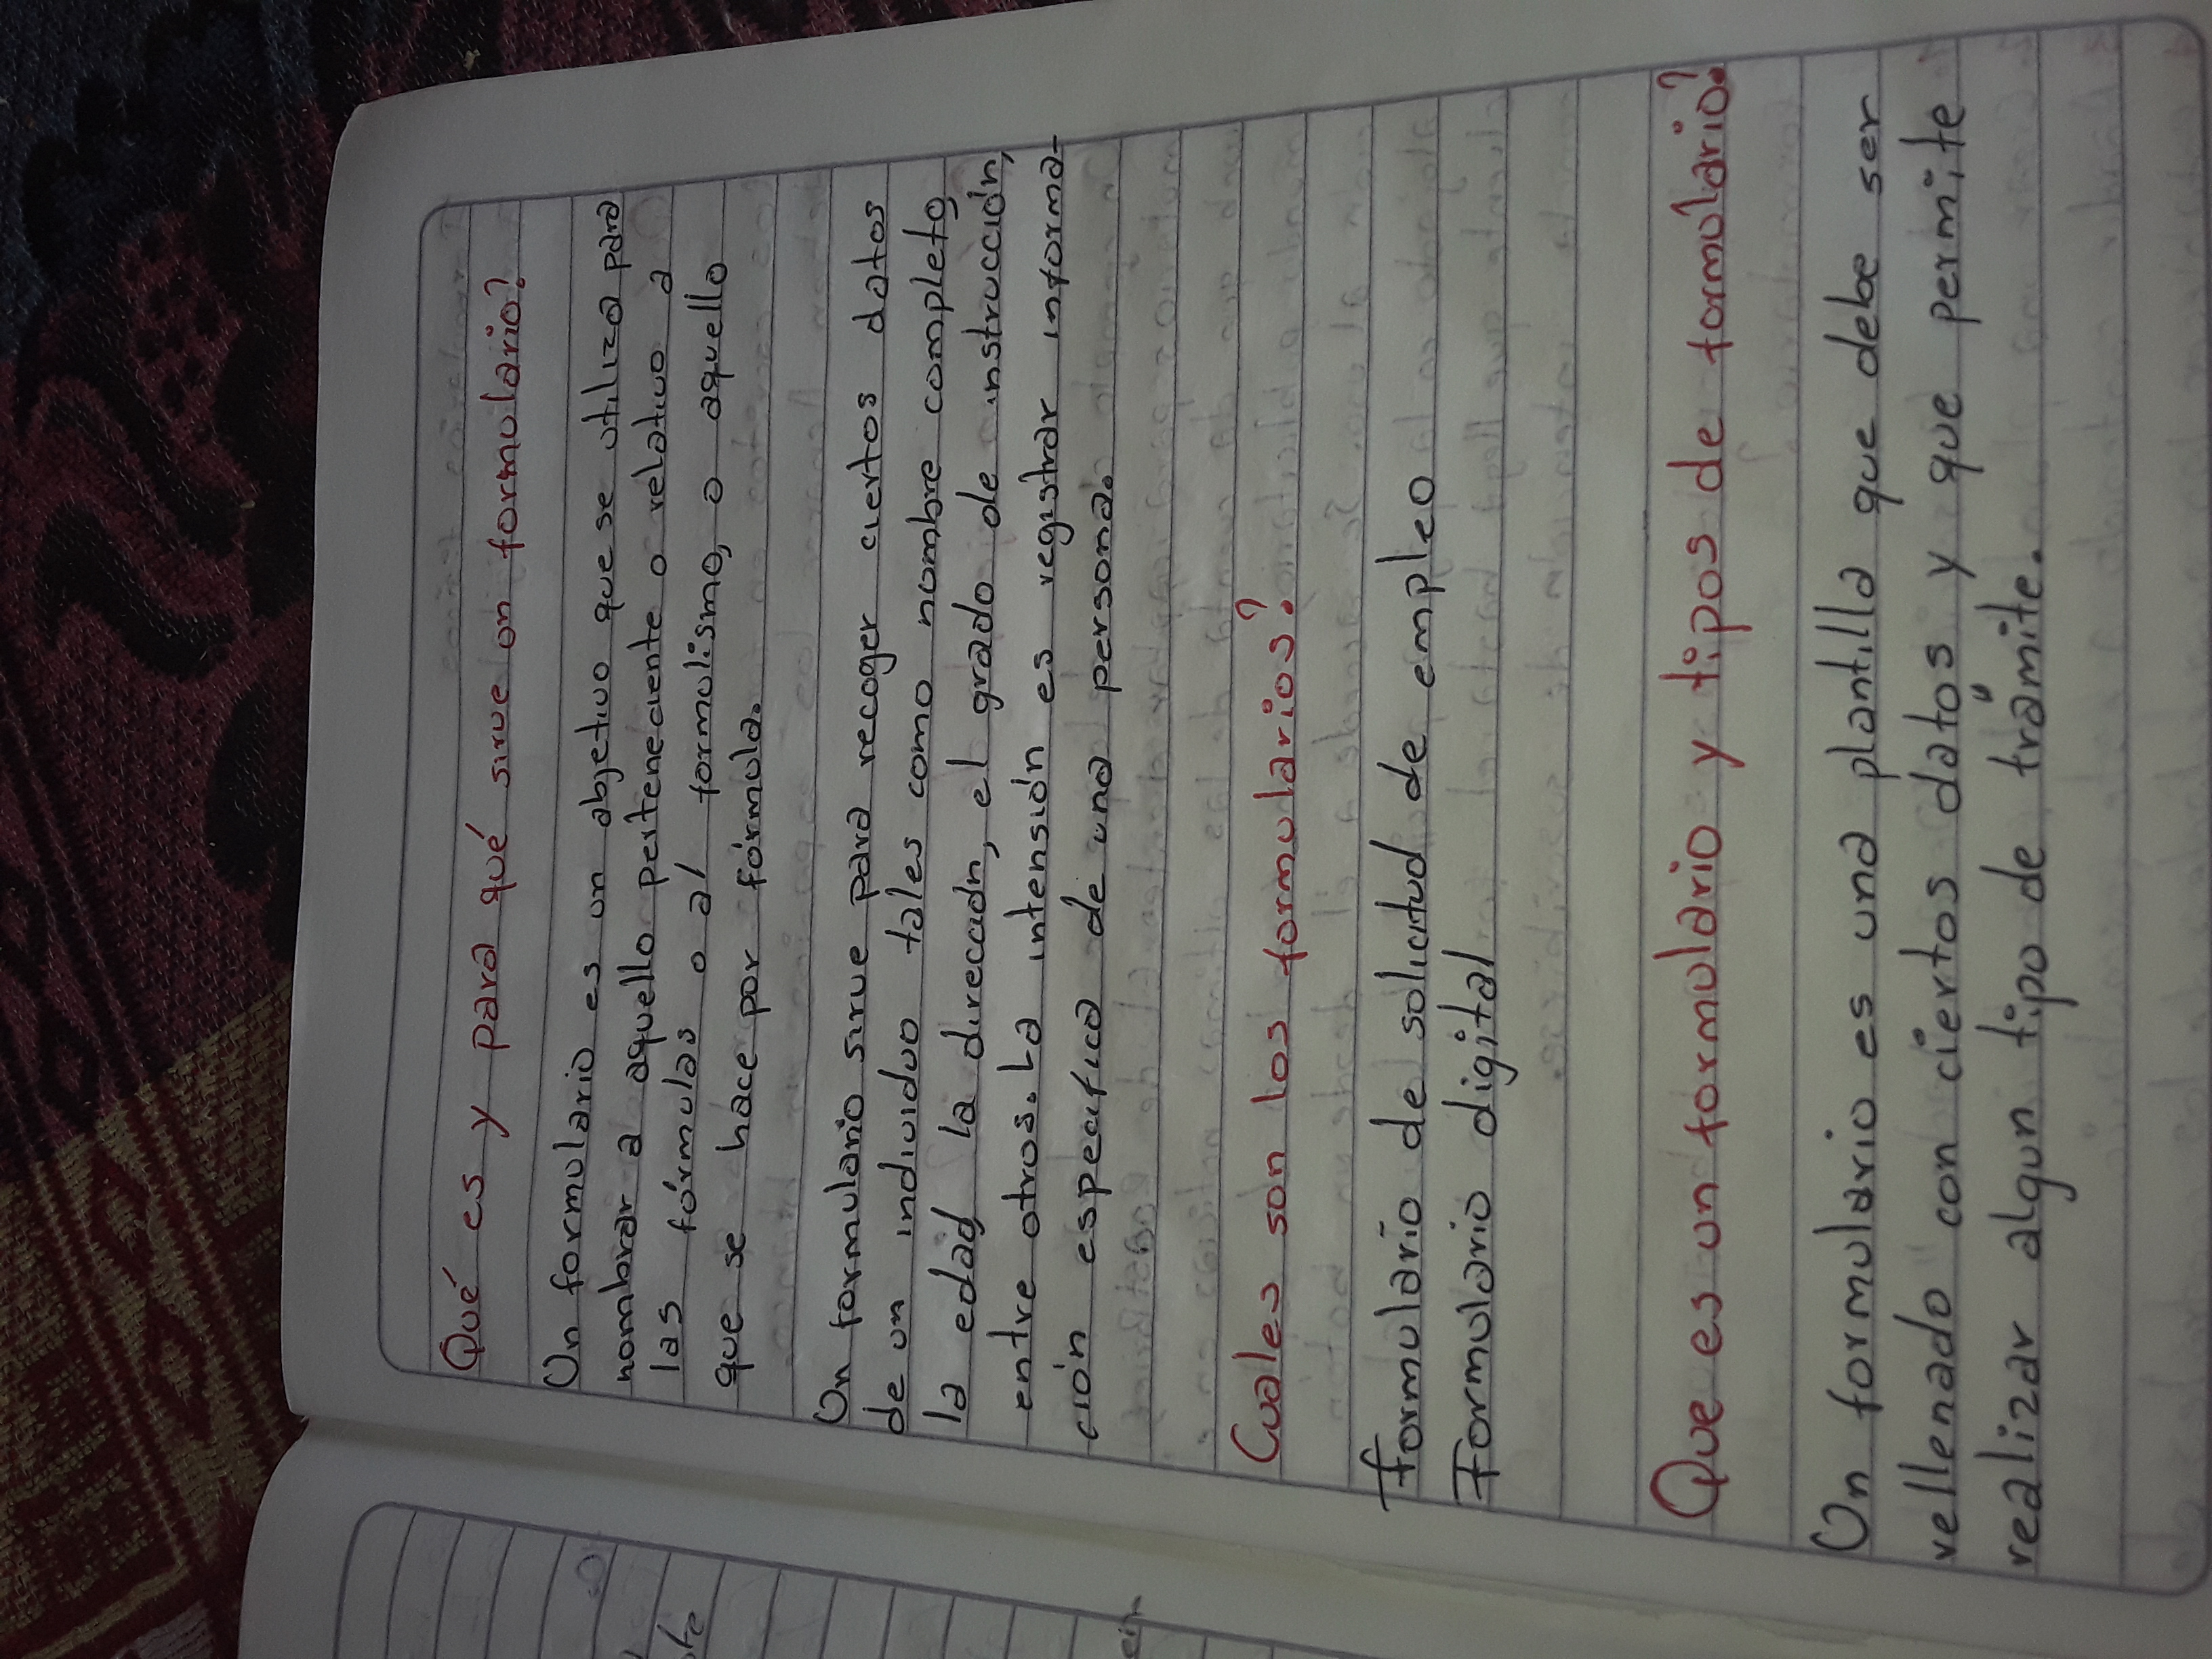 Qué es y para qué sirve un formulario?
Un formulario es un abjetivo que se utiliza para
nombrar a aquello perteneciente o relativo a
las fórmulas o al formulismo, o aquello
que se hace por fórmula.
Un formulario sirve para recoger ciertos datos
de un individuo tales como nombre completo,
la edad, la dirección, el grado de instrucción,
entre otros. La intensión es registrar informa-
ción específica de una persona.
Cuales son los formularios?
Formulario de solicitud de empleo
Formulario digital
Que es un formulario y tipos de formulario?
Un formulario es una plantilla que debe ser
rellenado con ciertos datos y que permite
realizar algun tipo de trámite.